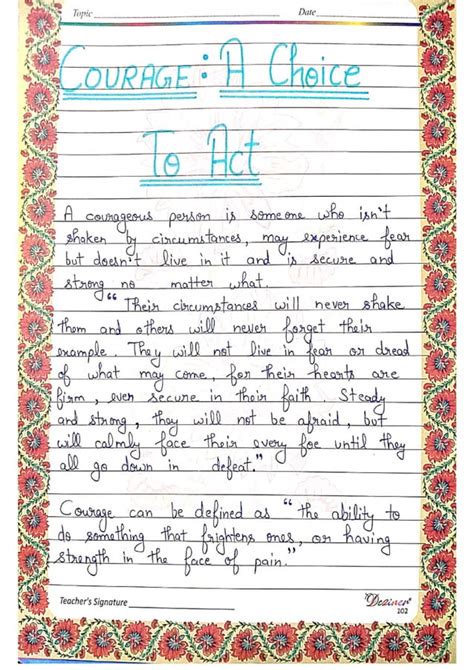 Topic Date
COURAGE: A Choice
To Act
A courageous person is someone who isn't
shaken by circumstances, may experience fear
but doesn't live in it and is secure and
strong no matter what.
"Their circumstances will never shake
them and others will never forget their
example. They will not live in fear or dread
of what may come, for their hearts are
firm, ever secure in their faith Steady
and strong, they will not be afraid, but
will calmly face their every foe until they
all go down in defeat."
Courage can be defined as "the ability to
do something that frightens ones, or having
strength in the face of pain."
Teacher's Signature
Deziner
102